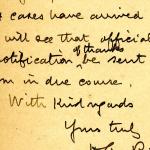 cakes have arrived
will see that official
of thanks
notification be sent
m in due course.
With Kind regards
Yours truly